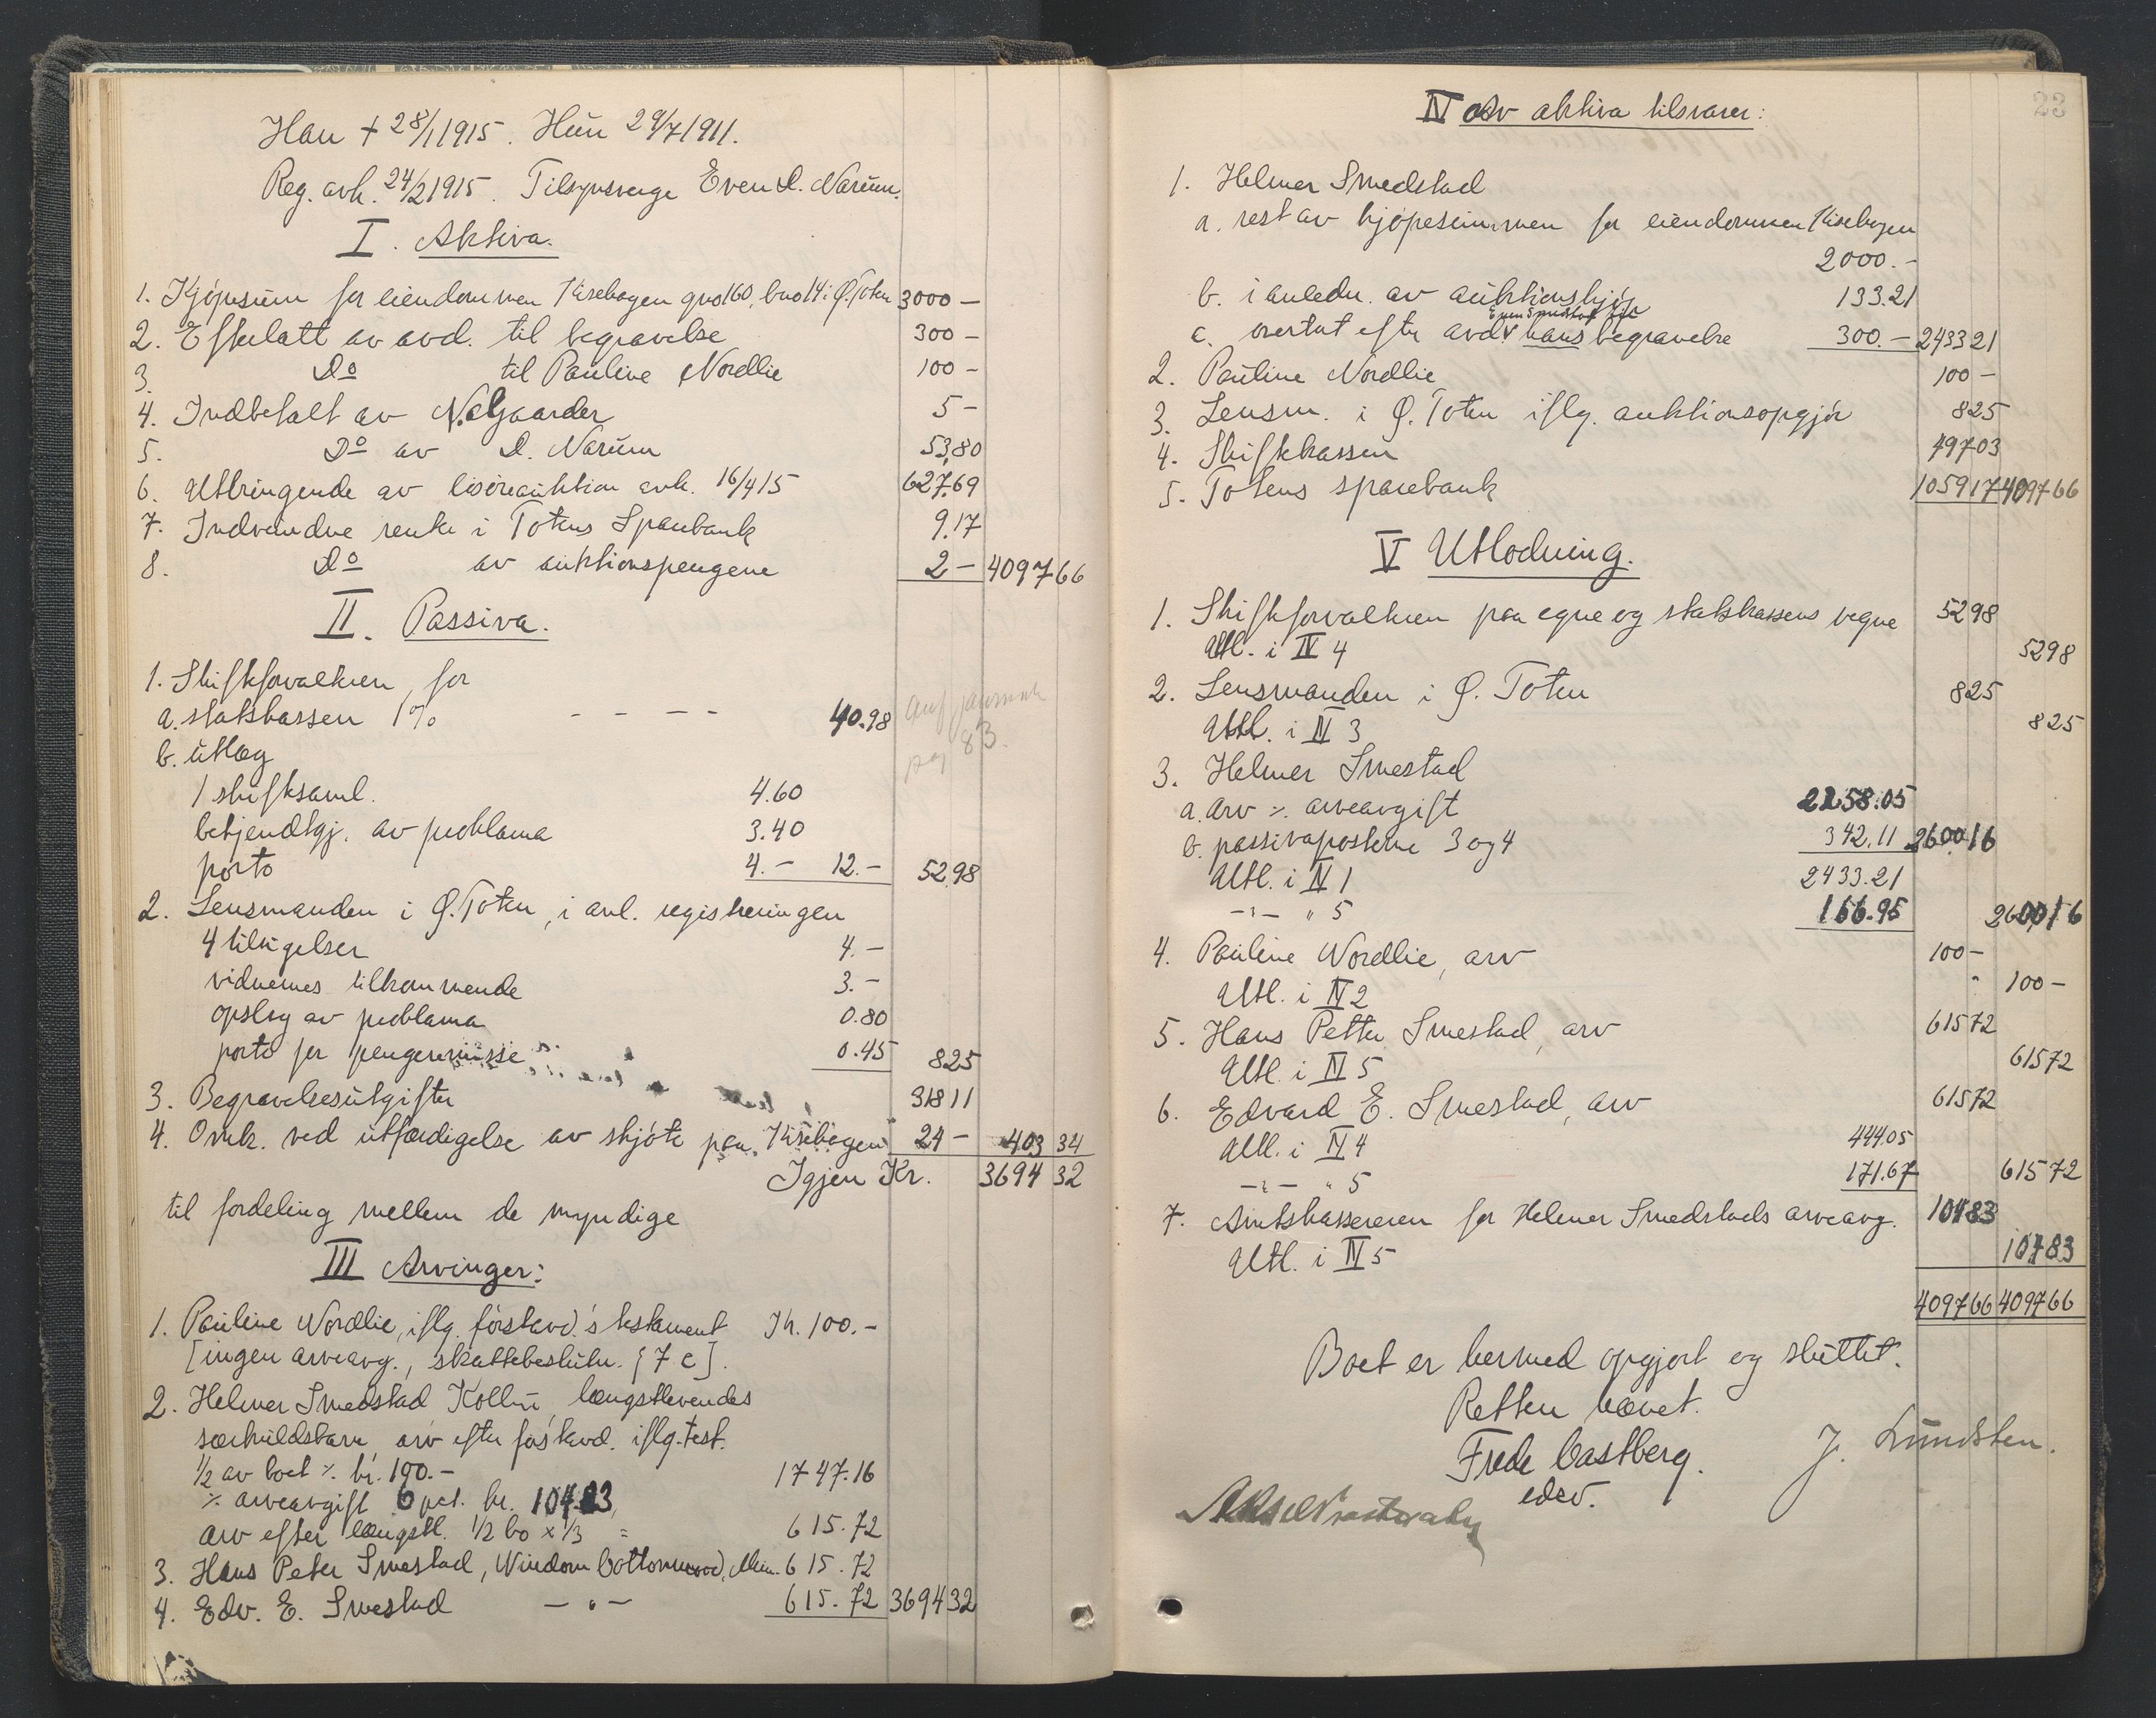 Han + 28/1 1915. Hun 29/7 1911.
Reg. avh. 24/2 1915. Tilsynsverge Even D. Narum.
I. Aktiva.
1. Kjøpesum for eiendommen Kisehagen gno 160, bno 14 i Ø. Toten 3000 —
2. Efterlatt av avd. til begravelse 300 —
3. Do til Pauline Nordlie 100 —
4. Indbetalt av N. Gaarder 5 —
5. Do av D. Narum 53,80
6. Utbringende av løsøreauktion avh. 16/4 15 627,69
7. Indvundne renter i Totens Sparebank 9.17
8. Do av auktionspengene 2 — 4097 66
II. Passiva.
1. Skifteforvalteren, for
a. statskassen 1% - - - - 40.98
pag 83.
b. utlæg
1 skiftesaml. 4.60
bekjendtgj. av proklama 3.40
porto 4.- 12.- 52 98
2. Lensmanden i Ø. Toten, i anl. registreringen
4 tilsigelser 4.-
vidnernes tilkommende 3.-
opslag av proklama 0.80
porto for pengeremisse 0.45 8 25
3. Begravelsesutgifter 318 11
4. Omk. ved utfærdigelse av skjøte paa Kisehagen 24 — 403 34
Igjen Kr. 3694 32
til fordeling mellem de myndige
III Arvinger:
1. Pauline Nordlie, iflg. førstavd.'s testament Kr. 100.-
[ingen arveavg., skattebeslutn. § 7 c].
2. Helmer Smedstad Kolbu, længstlevendes
særkuldsbarn, arv efter førstavd. iflg. test.
1/2 av boet ÷ kr. 100.- 1747.16
÷ arveavgift 6 pct. kr. 104.83,
arv efter længstl. 1/2 bo x 1/3 = 615.72
3. Hans Peter Smestad, Windom Cottonwood, Min. 615.72
4. Edv. E. Smestad — " — 615.72 3694 32
23
IV Av aktiva tilsvarer:
1. Helmer Smedstad
a. rest av kjøpesummen for eiendommen Kisehagen
2000.-
b. i anledn. av auktionskjøp 133.21
c. overtat efter avd. Even Smedstad til hans begravelse 300.- 2433 21
2. Pauline Nordlie 100 —
3. Lensm. i Ø. Toten iflg. auktionsopgjør 8 25
4. Skiftekassen 497 03
5. Totens sparebank 1059 17 4097 66
V Utlodning.
1. Skifteforvalteren paa egne og statskassens vegne 52 98
Utl. i IV 4 52 98
2. Lensmanden i Ø. Toten 8 25
Utl. i IV 3 8 25
3. Helmer Smestad
a. arv ÷ arveavgift 2258.05
b. passivaposterne 3 og 4 342.11 2600 16
Utl. i IV 1 2433.21
— " — " 5 166.95 2600 16
4. Pauline Nordlie, arv 100 —
Utl. i IV 2 100 —
5. Hans Petter Smestad, arv 615 72
Utl. i IV 5 615 72
6. Edvard E. Smestad, arv 615 72
Utl. i IV 4 444.05
— " — " 5 171.67 615 72
7. Amtskassereren for Helmer Smedstads arveavg. 104 83
Utl. i IV 5 104 83
4097 66 4097 66
Boet er hermed opgjort og sluttet.
Retten hævet.
Frede Castberg. J. Lundsten.
edsv.